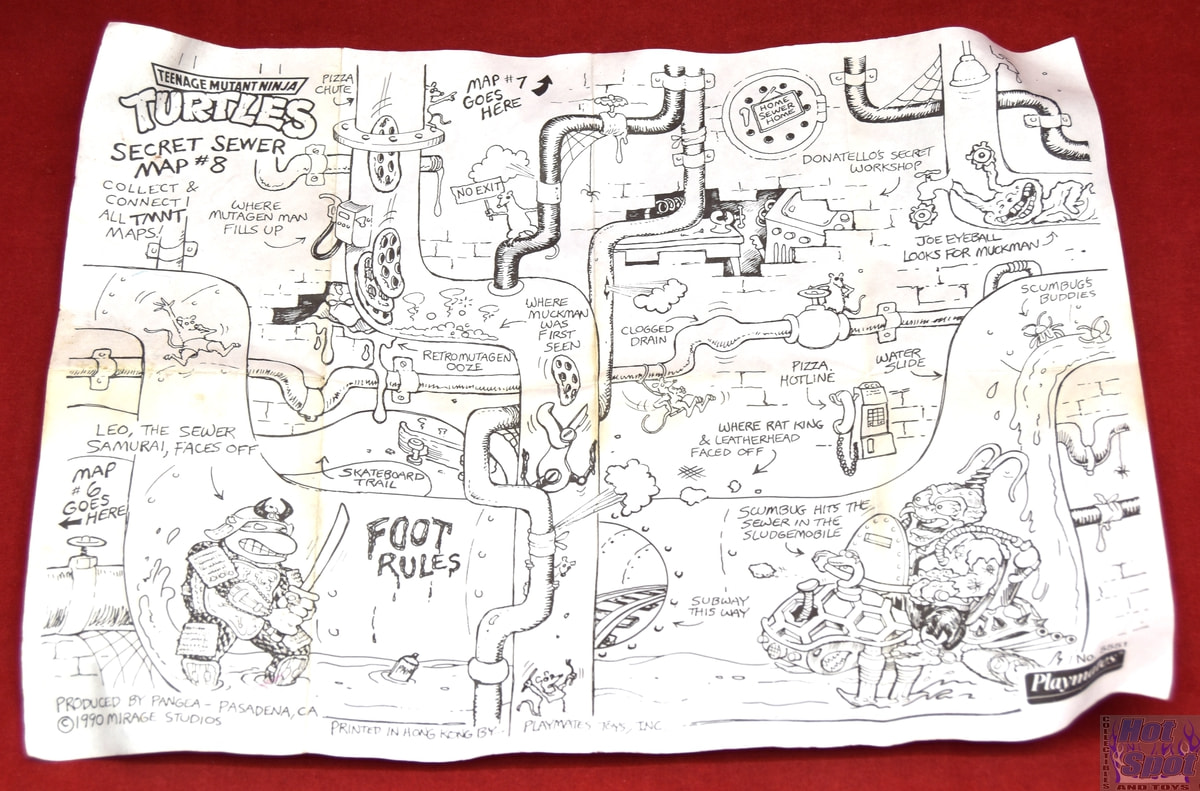 TEENAGE MUTANT NINJA
TURTLES
SECRET SEWER
MAP #8
COLLECT &
CONNECT
ALL TMNT
MAPS!
PIZZA
CHUTE
MAP #7
GOES
HERE
HOME
SEWER
HOME
WHERE
MUTAGEN MAN
FILLS UP
NO EXIT
DONATELLO'S SECRET
WORKSHOP
JOE EYEBALL
LOOKS FOR MUCKMAN
WHERE
MUCKMAN
WAS
FIRST
SEEN
CLOGGED
DRAIN
SCUMBUG'S
BUDDIES
RETROMUTAGEN
OOZE
PIZZA
HOTLINE
WATER
SLIDE
LEO, THE SEWER
SAMURAI, FACES OFF
WHERE RAT KING
& LEATHERHEAD
FACED OFF
MAP
#6
GOES
HERE
SKATEBOARD
TRAIL
FOOT
RULES
SCUMBUG HITS THE
SEWER IN THE
SLUDGEMOBILE
SUBWAY
THIS WAY
No. 5551
Playmates
PRODUCED BY PANGEA - PASADENA, CA
©1990 MIRAGE STUDIOS
PRINTED IN HONG KONG BY PLAYMATES TOYS, INC
COLLECTIBLES
Hot
Spot
AND TOYS